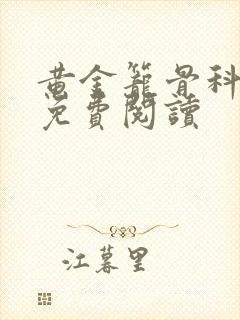 黄金籠骨科
免費閱讀
江暮里